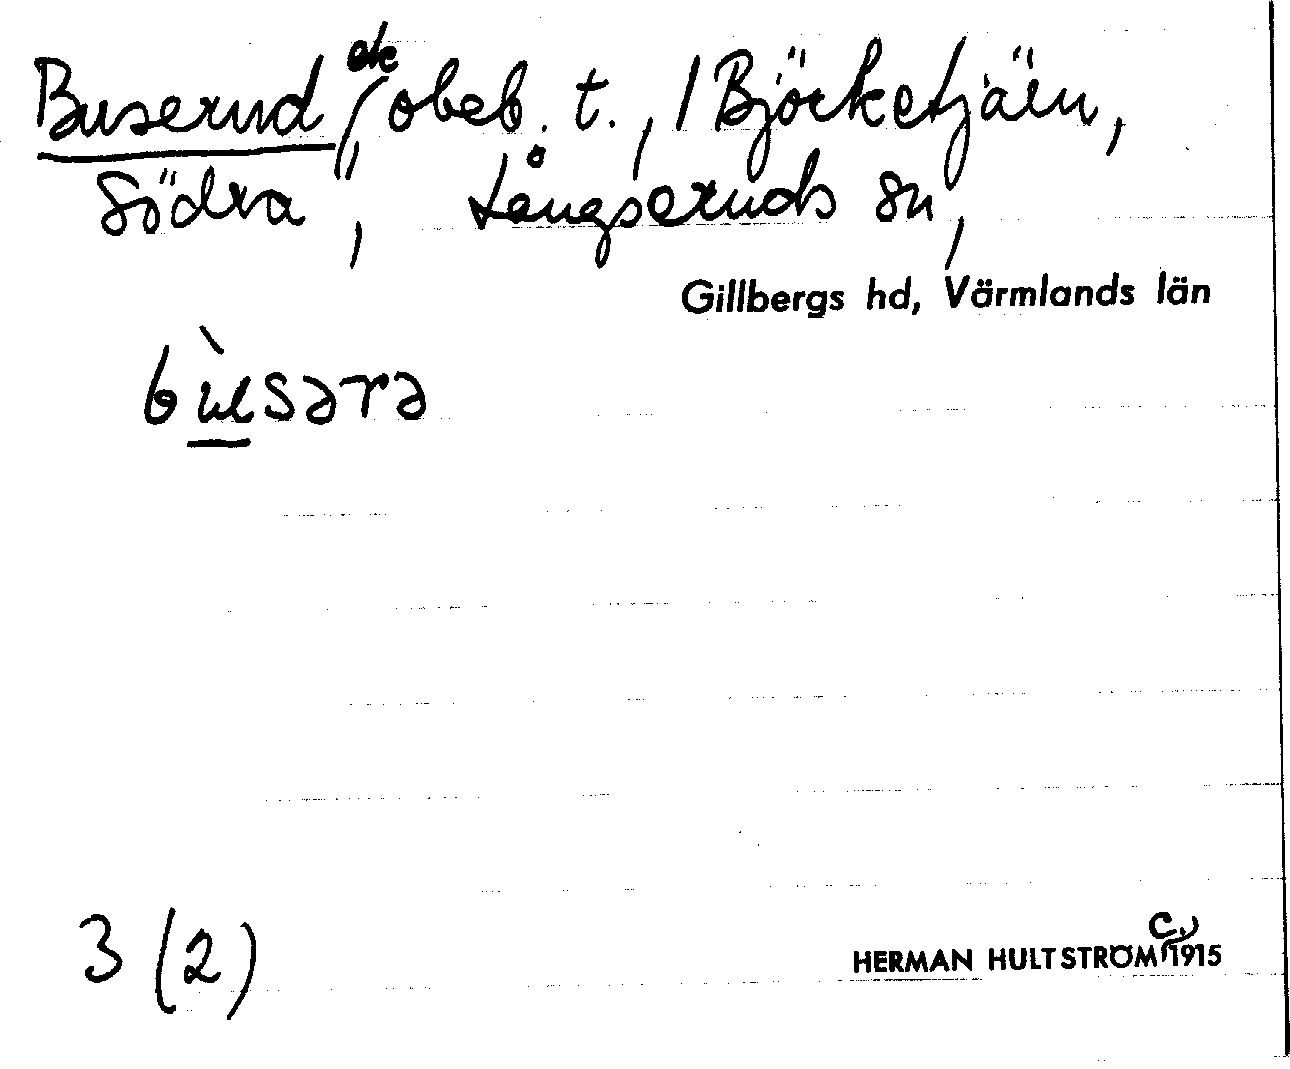 Buserud, ek obeb. t., / Björketjärn,
Södra, Långseruds sn,
Gillbergs hd, Värmlands län
bùsərə
3 (2)
HERMAN HULTSTRÖM C., 1915